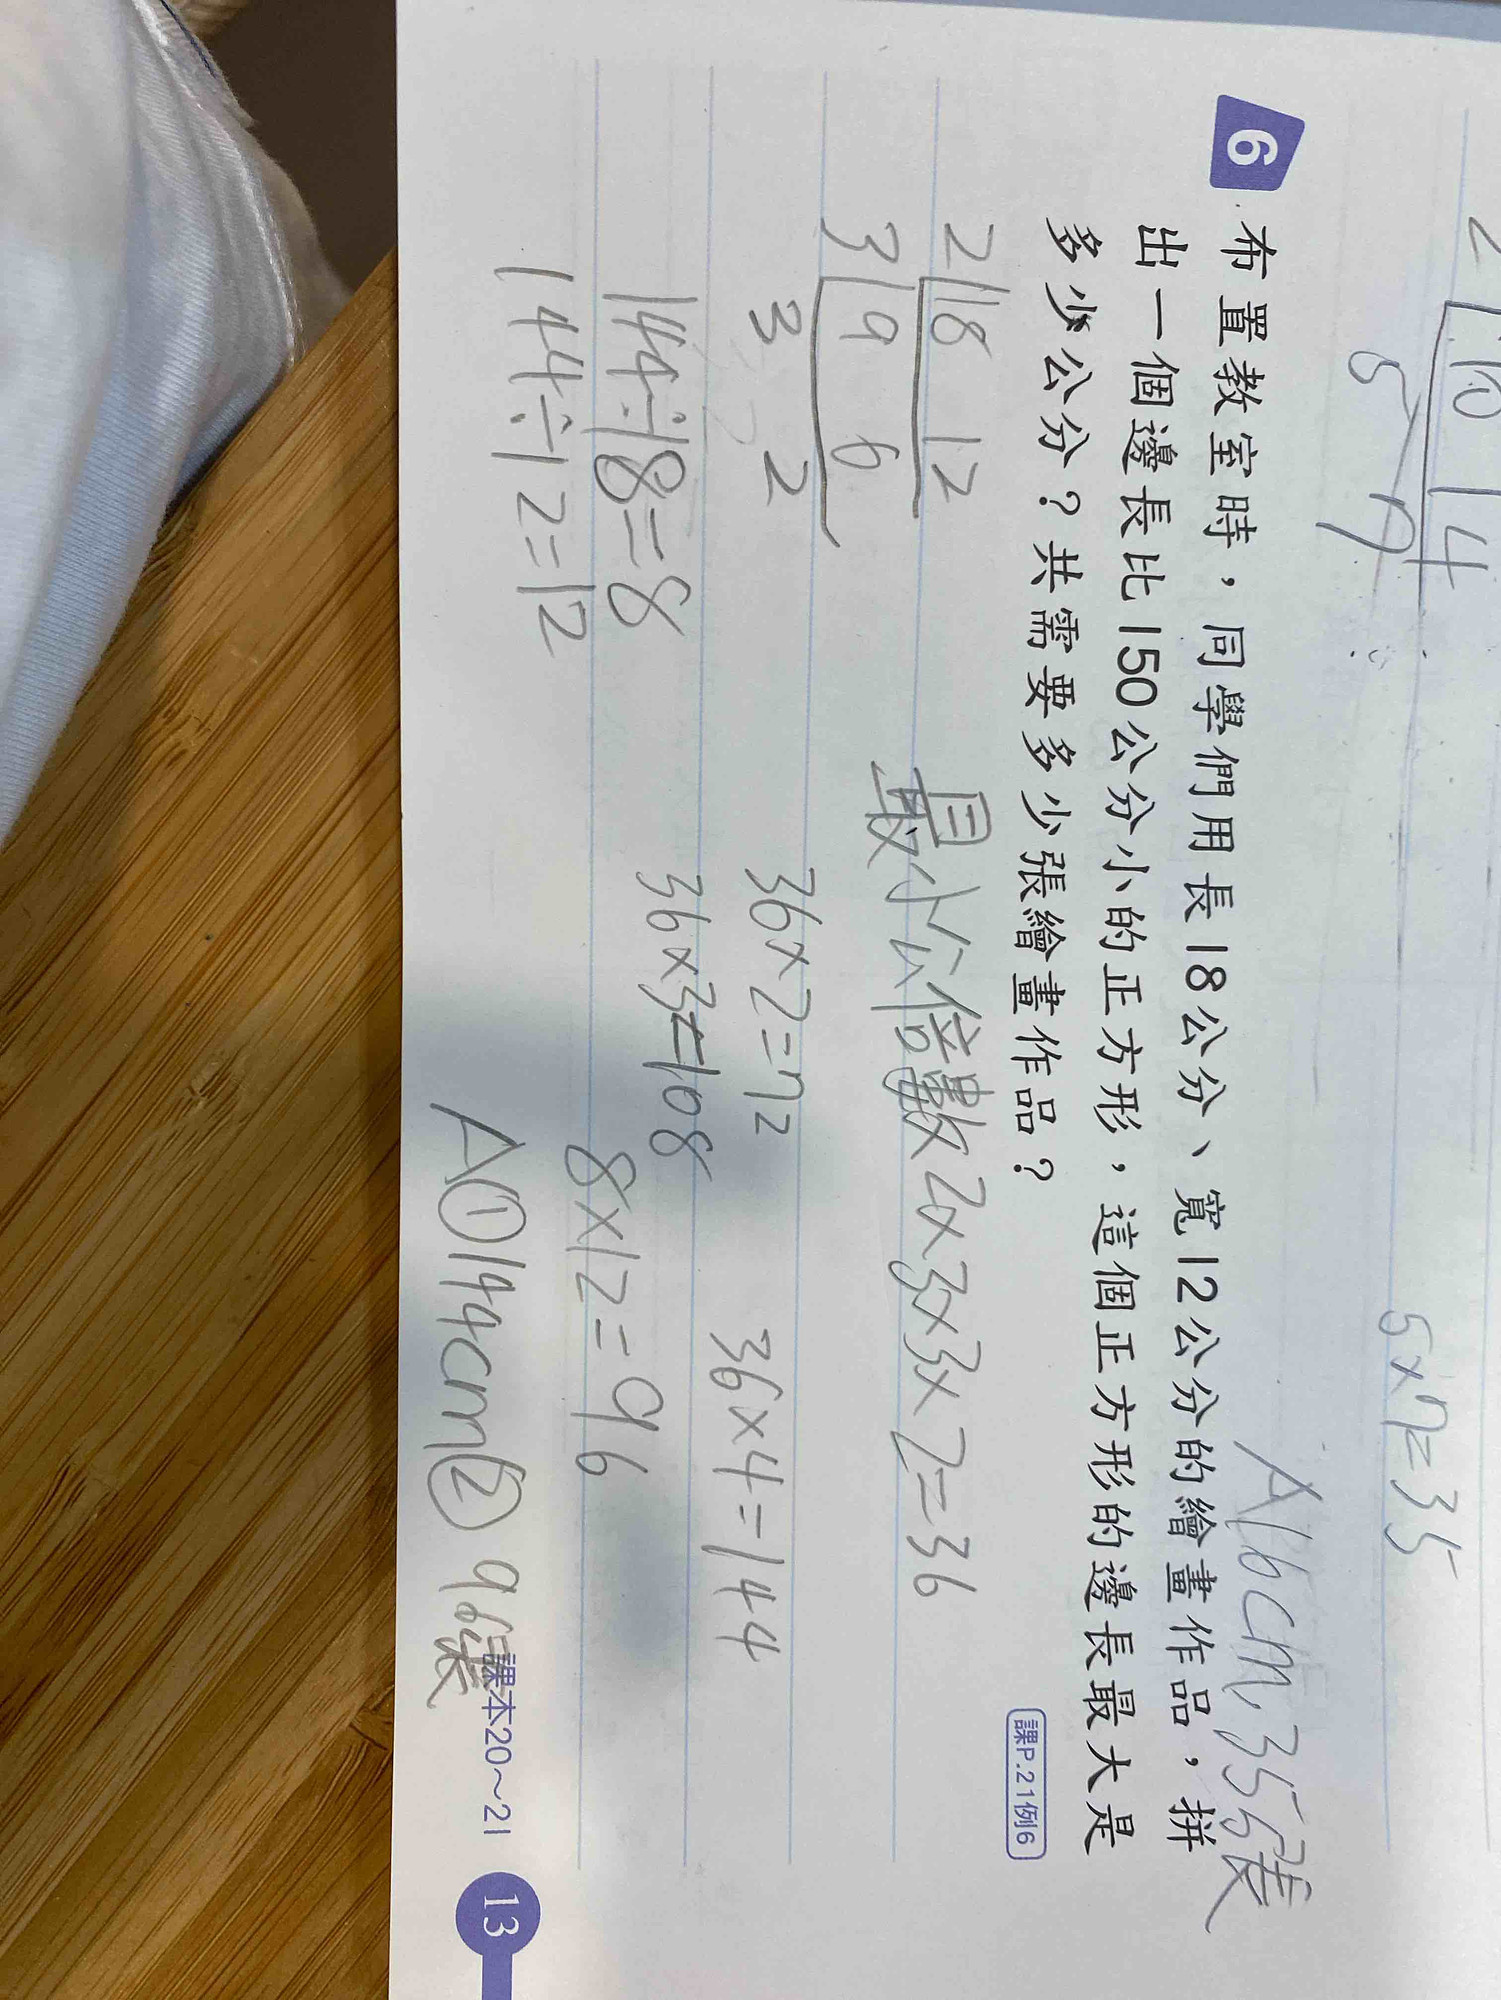 2 10 14
5 7
5×7=35
A 16cm, 35張
6
布置教室時，同學們用長18公分、寬12公分的繪畫作品，拼
出一個邊長比150公分小的正方形，這個正方形的邊長最大是
多少公分？共需要多少張繪畫作品？
課P.21例6
2 18 12
最小公倍數2×3×3×2=36
3 9 6
3 2
36×2=72
36×4=144
36×3=108
144÷18=8
8×12=96
144÷12=12
A①144cm②96張
課本20～21
13